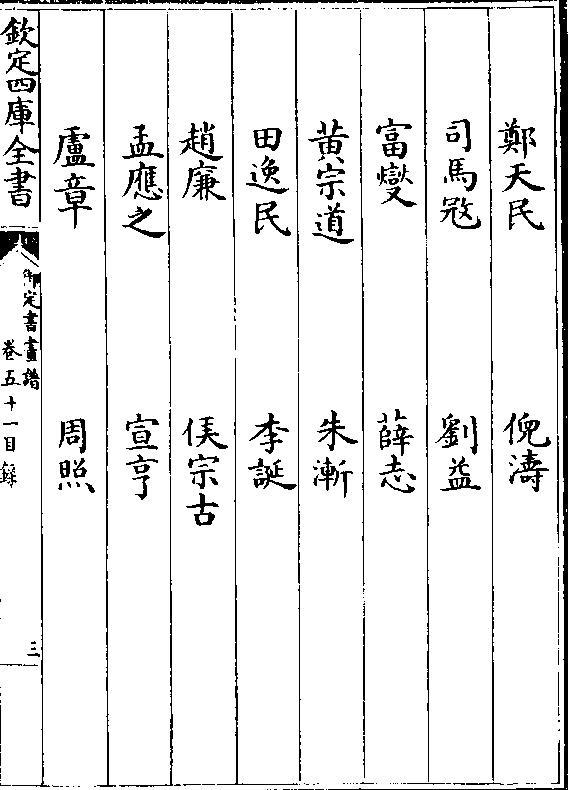 鄭天民 倪濤
司馬㓂 劉益
富燮 薛志
黄宗道 朱漸
田逸民 李誕
趙廉 侯宗古
孟應之 宣亨
盧章 周照
欽定四庫全書
御定書畫譜
卷五十一目錄
三